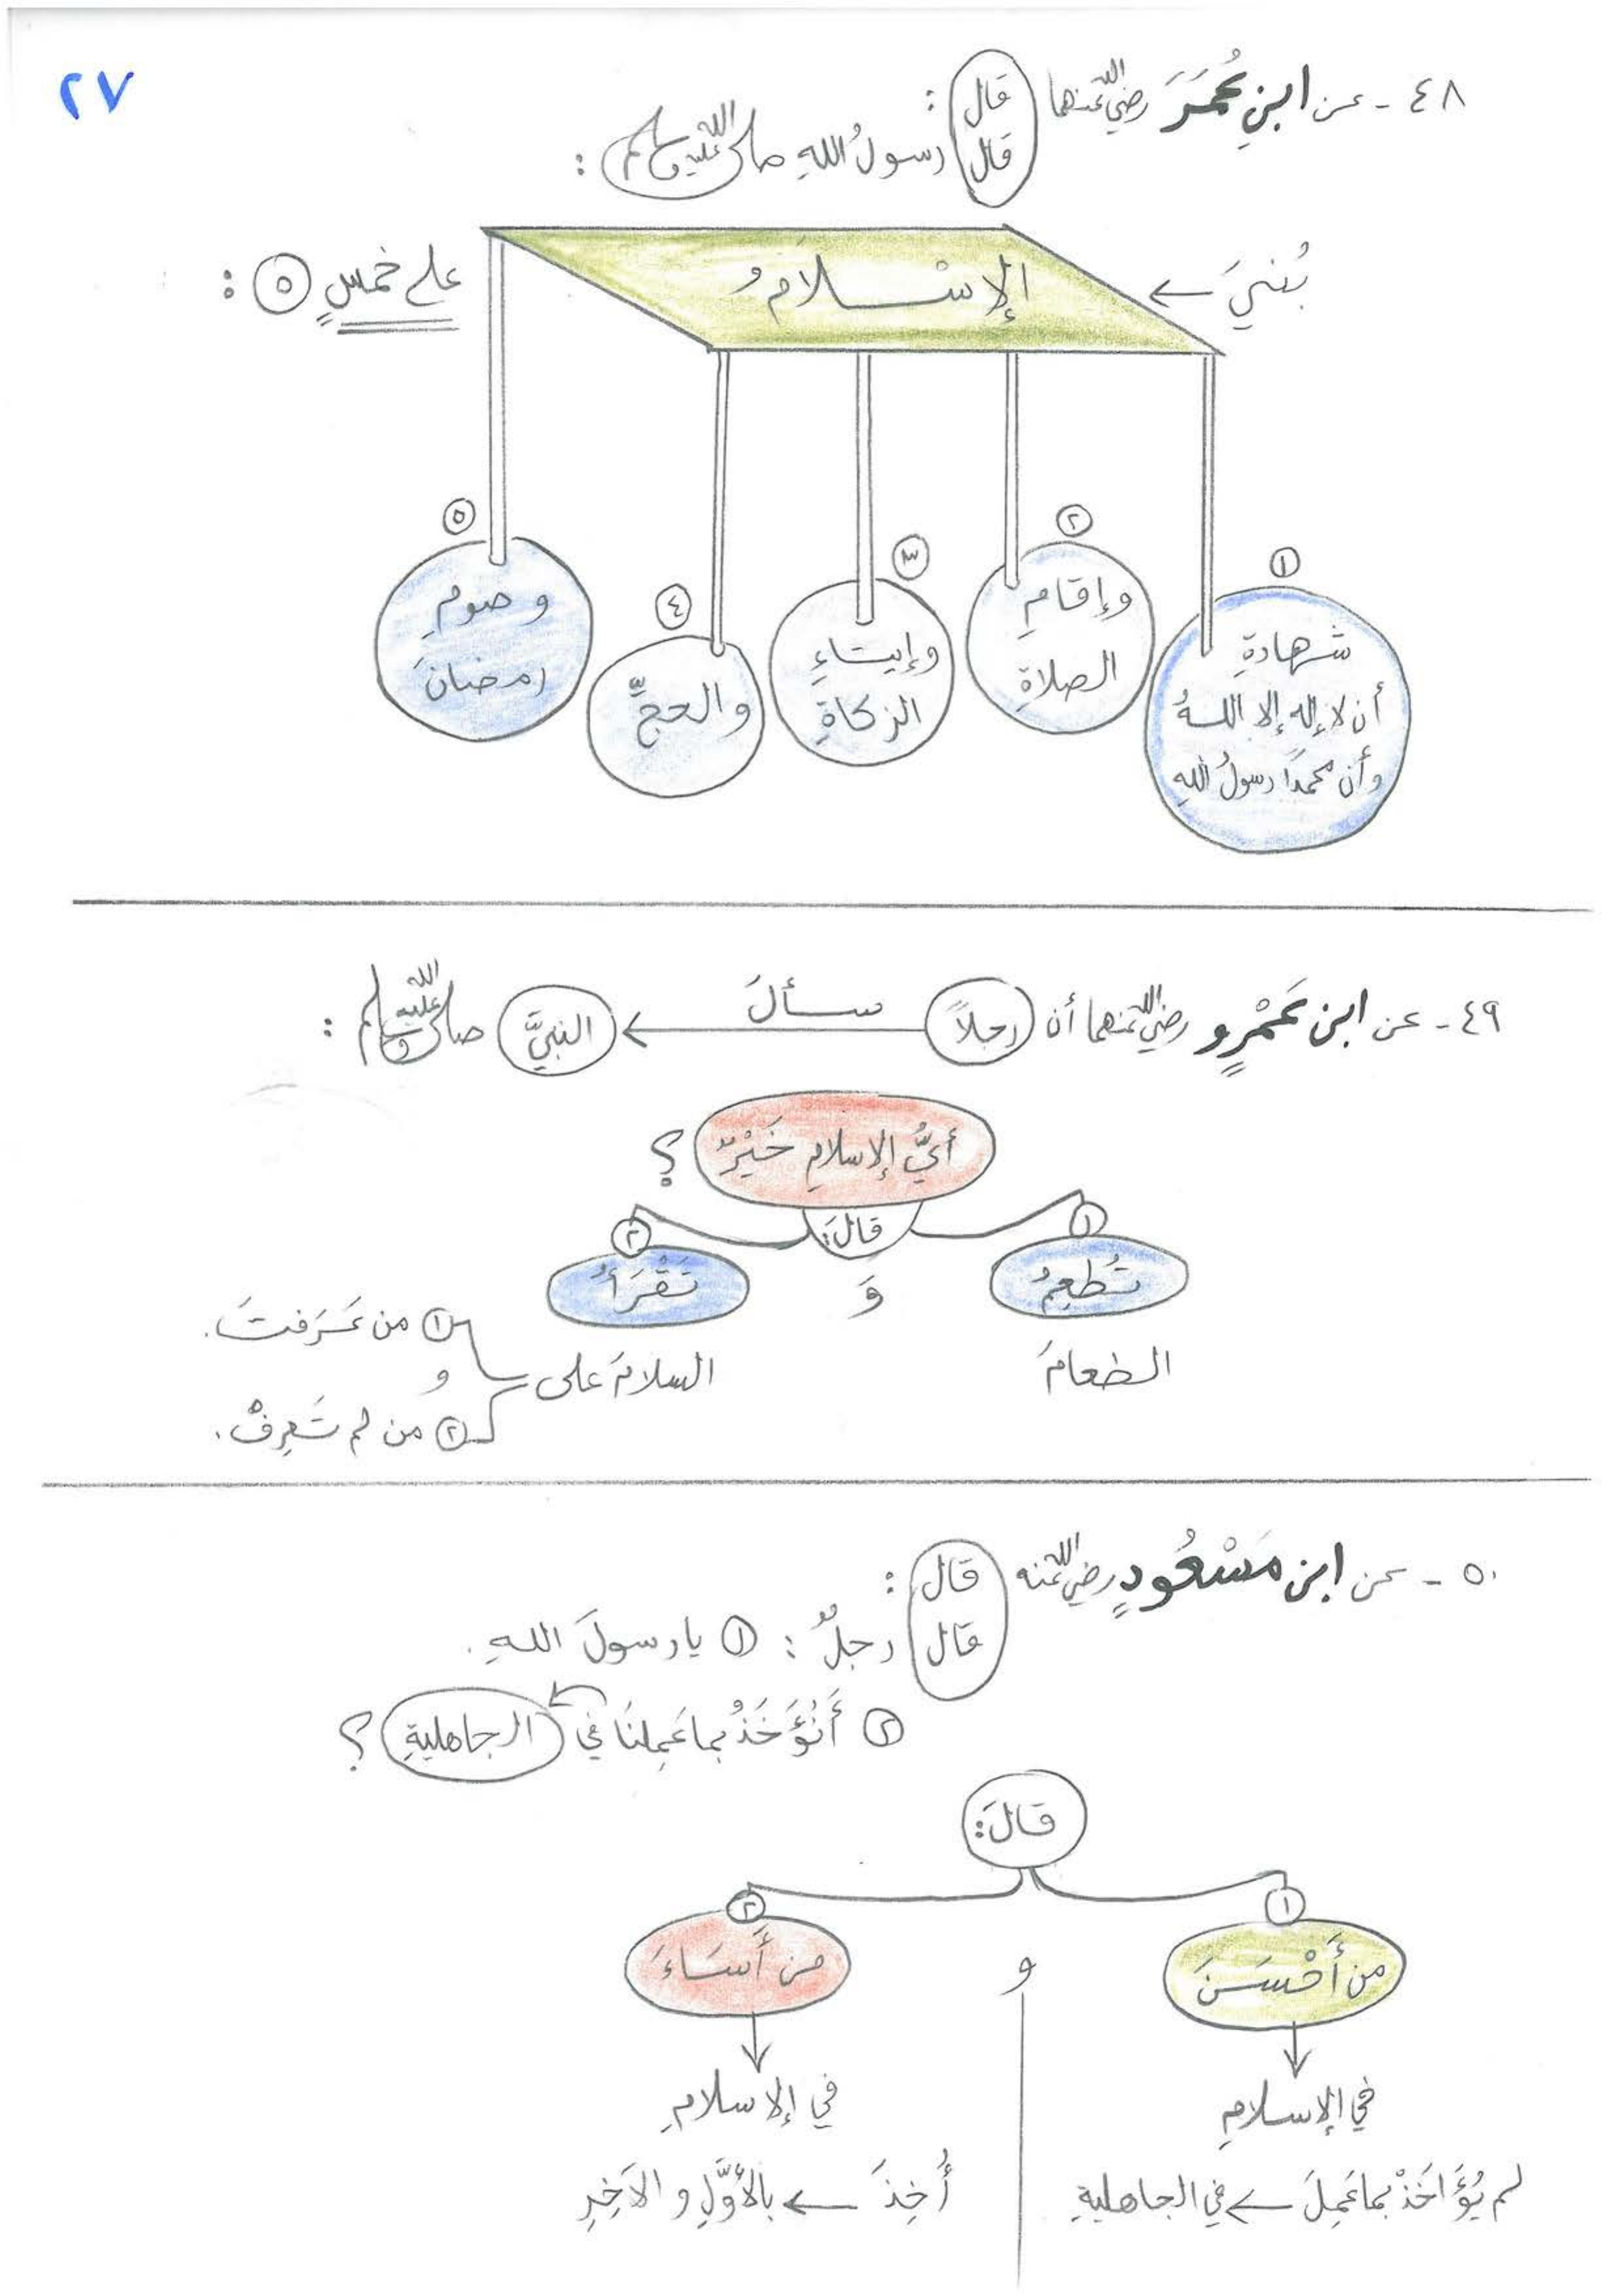 ٢٧
٤٨ - عن ابنِ عُمَرَ رضي الله عنهما قال :
قال رسولُ اللهِ صلى الله عليه وسلم :
بُنيَ ← الإسْلامُ على خمسٍ ٥ :
١ شهادةِ
أن لا إله إلا اللهُ
وأن محمدًا رسولُ اللهِ
٢ وإقامِ
الصلاةِ
٣ وإيتاءِ
الزكاةِ
٤ والحجِّ
٥ وصومِ
رمضانَ
٤٩ - عن ابن عَمْرٍو رضي الله عنهما أن رجلاً سألَ النبيَّ صلى الله عليه وسلم :
أيُّ الإسلامِ خَيْرٌ ؟
قالَ:
١ تُطعِمُ
الطعامَ
وَ
٢ تَقْرَأُ
السلامَ على
١ من عَرَفتَ.
و
٢ من لم تَعرِفْ.
٥٠ - عن ابن مَسْعُودٍ رضي الله عنه قال :
قال رجلٌ : ١ يا رسولَ اللهِ.
٢ أَنُؤَخَذُ بما عَمِلنَا في الجاهليةِ ؟
قالَ:
١ من أَحْسَنَ
في الإسلامِ
لم يُؤَاخَذْ بما عَمِلَ ← في الجاهليةِ
و
٢ من أَسَاءَ
في الإسلامِ
أُخِذَ ← بالأَوَّلِ والآخِرِ